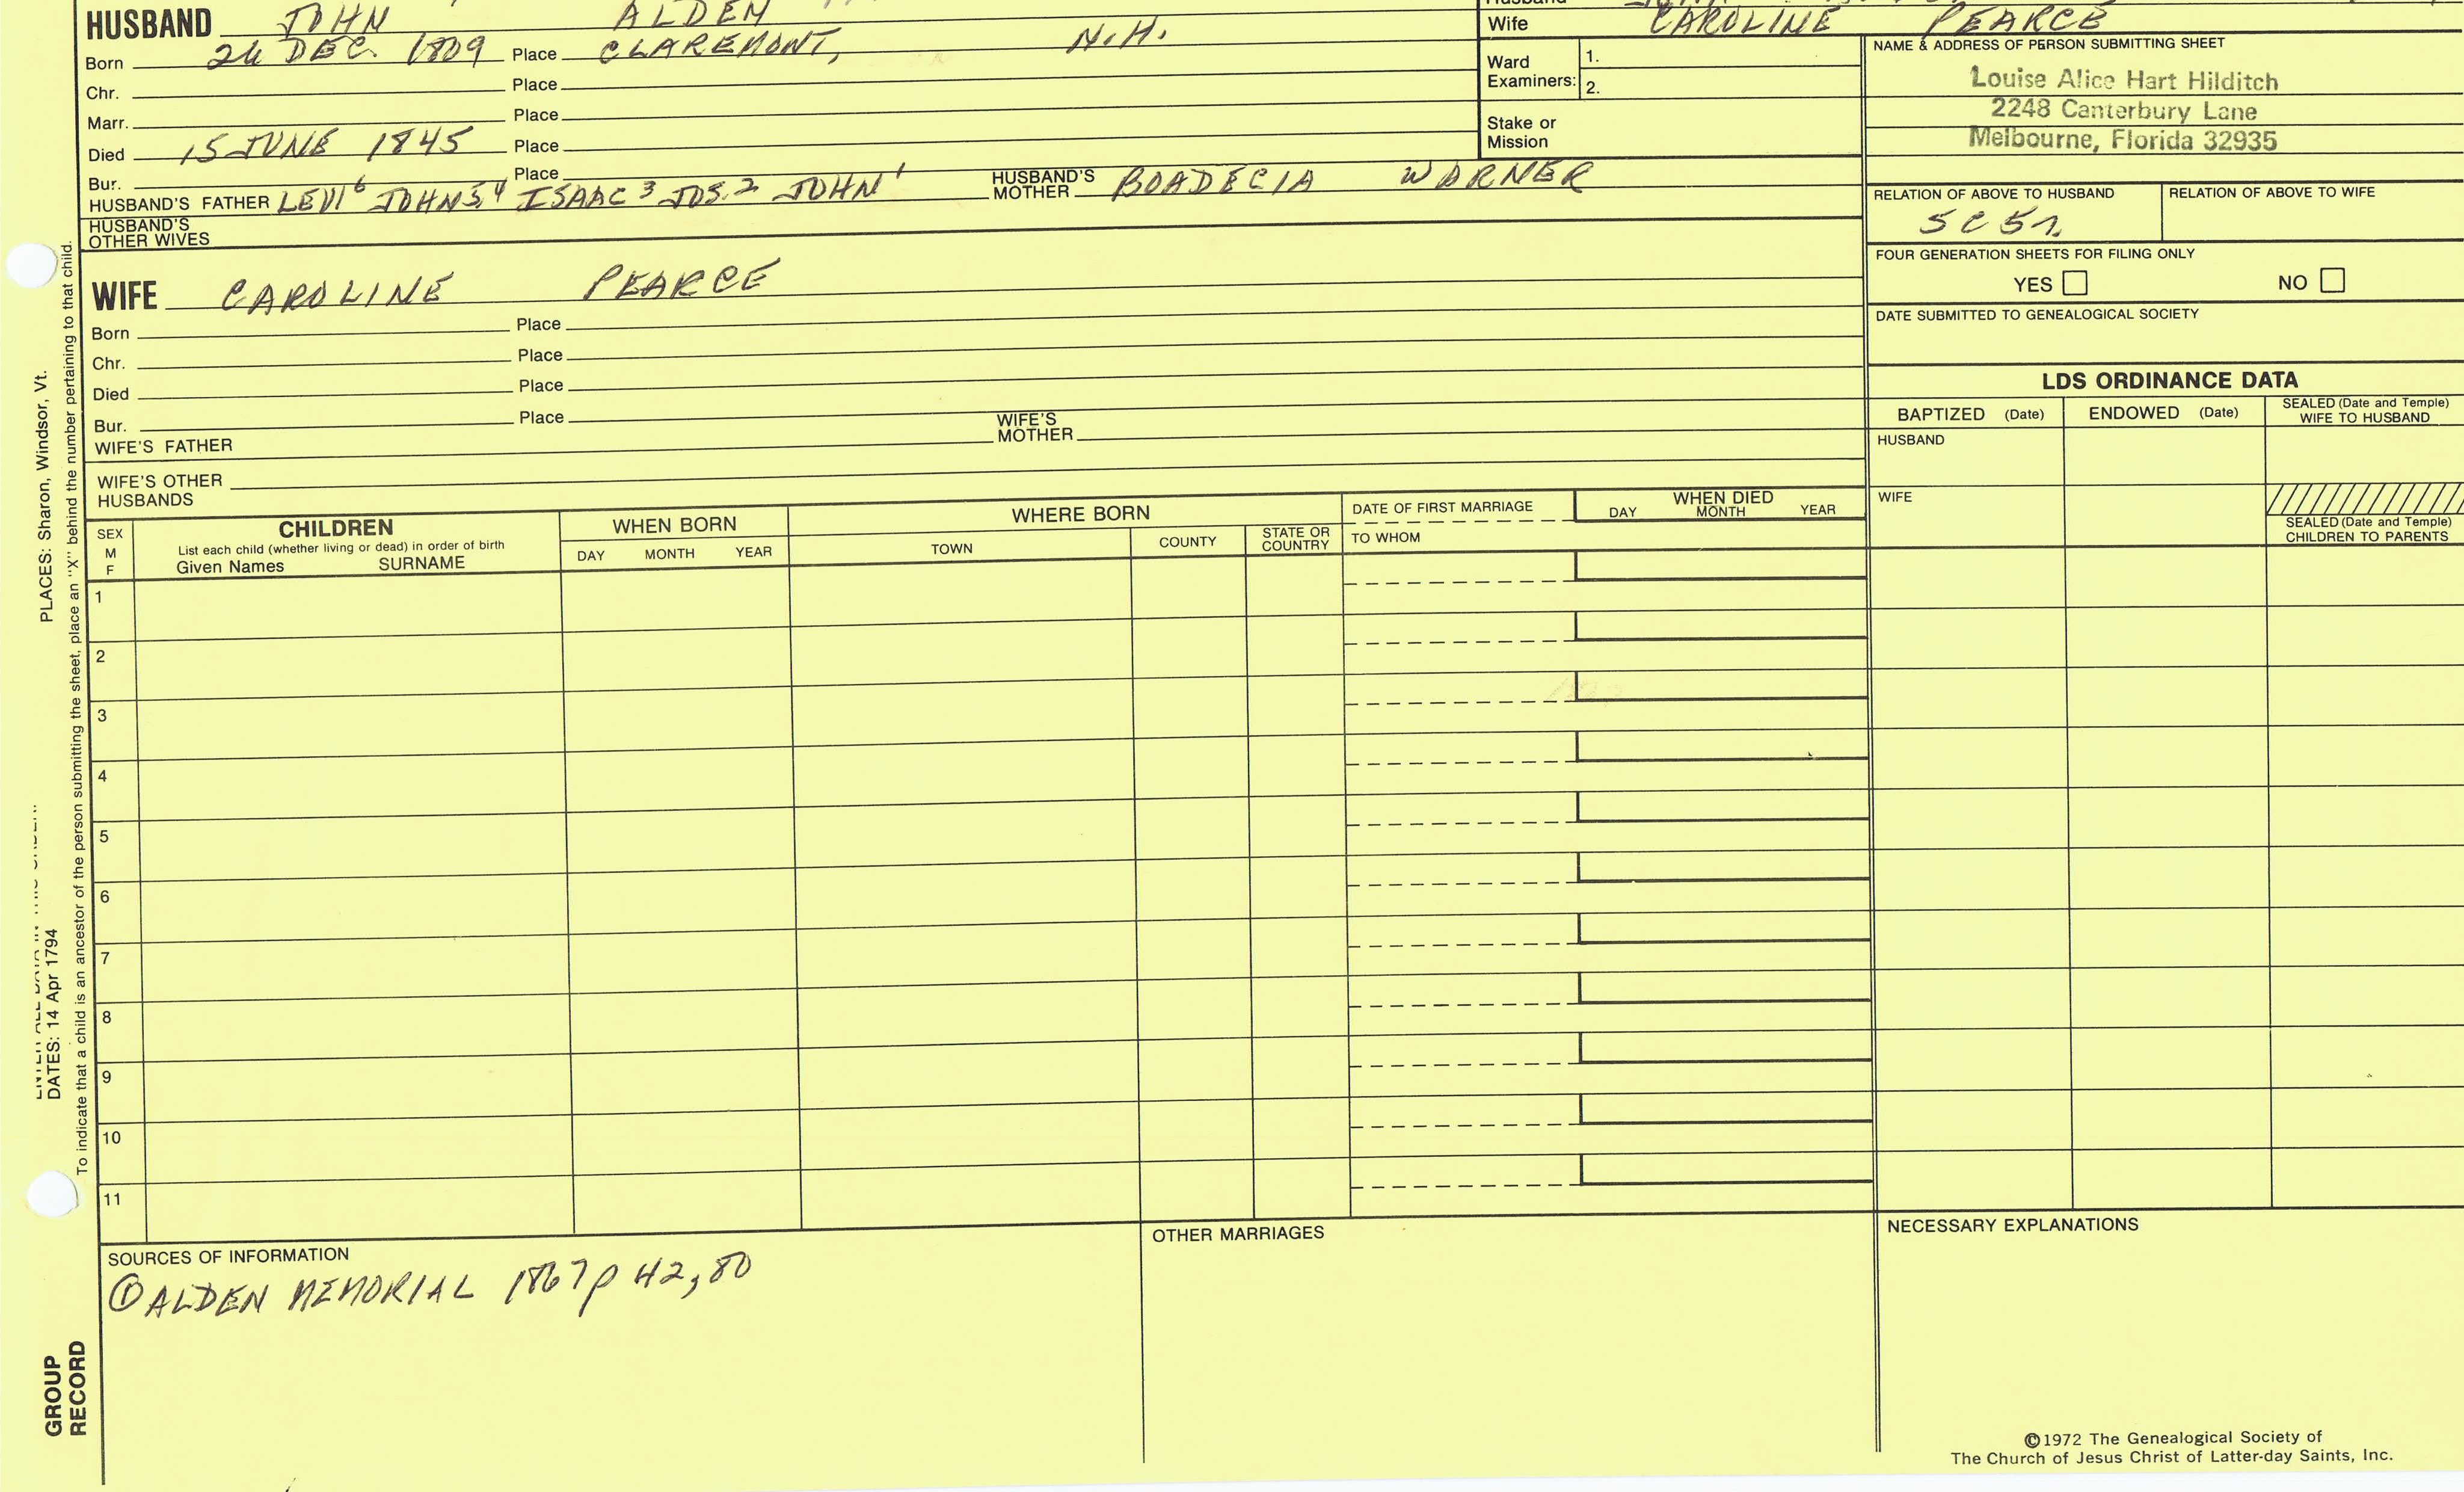 HUSBAND JOHN ALDEN
Born 24 DEC. 1809 Place CLAREMONT, N.H.
Chr. Place
Marr. Place
Died 15 JUNE 1845 Place
Bur. Place
HUSBAND'S FATHER LEVI 6 JOHN 5,4 ISAAC 3 JOS. 2 JOHN 1 HUSBAND'S MOTHER BOADECIA WARNER
HUSBAND'S OTHER WIVES
WIFE CAROLINE PEARCE
Born Place
Chr. Place
Died Place
Bur. Place
WIFE'S FATHER WIFE'S MOTHER
WIFE'S OTHER HUSBANDS
Husband
Wife CAROLINE PEARCE
Ward Examiners: 1.
2.
Stake or Mission
NAME & ADDRESS OF PERSON SUBMITTING SHEET
Louise Alice Hart Hilditch
2248 Canterbury Lane
Melbourne, Florida 32935
RELATION OF ABOVE TO HUSBAND RELATION OF ABOVE TO WIFE
5C5r.
FOUR GENERATION SHEETS FOR FILING ONLY
YES NO
DATE SUBMITTED TO GENEALOGICAL SOCIETY
LDS ORDINANCE DATA
BAPTIZED (Date) ENDOWED (Date) SEALED (Date and Temple) WIFE TO HUSBAND
HUSBAND
WIFE
SEALED (Date and Temple) CHILDREN TO PARENTS
SEX M F
CHILDREN
List each child (whether living or dead) in order of birth
Given Names SURNAME
WHEN BORN
DAY MONTH YEAR
WHERE BORN
TOWN COUNTY STATE OR COUNTRY
DATE OF FIRST MARRIAGE
TO WHOM
WHEN DIED
DAY MONTH YEAR
1
2
3
4
5
6
7
8
9
10
11
SOURCES OF INFORMATION
① ALDEN MEMORIAL 1867 p 42, 80
OTHER MARRIAGES
NECESSARY EXPLANATIONS
©1972 The Genealogical Society of
The Church of Jesus Christ of Latter-day Saints, Inc.
PLACES: Sharon, Windsor, Vt.
DATES: 14 Apr 1794
To indicate that a child is an ancestor of the person submitting the sheet, place an "X" behind the number pertaining to that child.
GROUP
RECORD